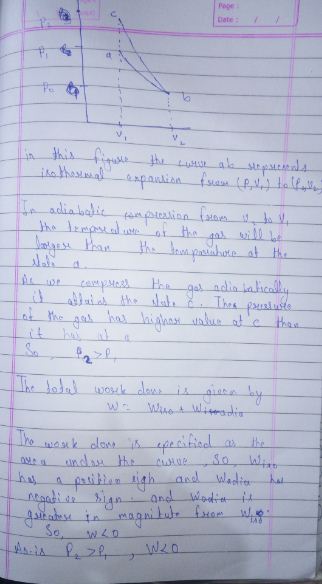 Page :
Date : / /
P2
c
P1
a
P0
b
V1
V2
in this figure the curve ab represents
isothermal expansion from (P1V1) to (P0V2
In adiabatic compression from V2 to V1
the temperature of the gas will be
larger than the temperature at the
state a
As we compress the gas adiabatically
it attains the state c. Then pressure
of the gas has higher value at c than
it has at a
So P2 > P1
The total work done is given by
W = Wiso + Wadia
The work done is specified as the
area under the curve, so Wiso
has a positive sigh and Wadia has
negative sign. and Wadia is
greater in magnitute from Wiso
So, W<0
Ans is P2 > P1 , W<0